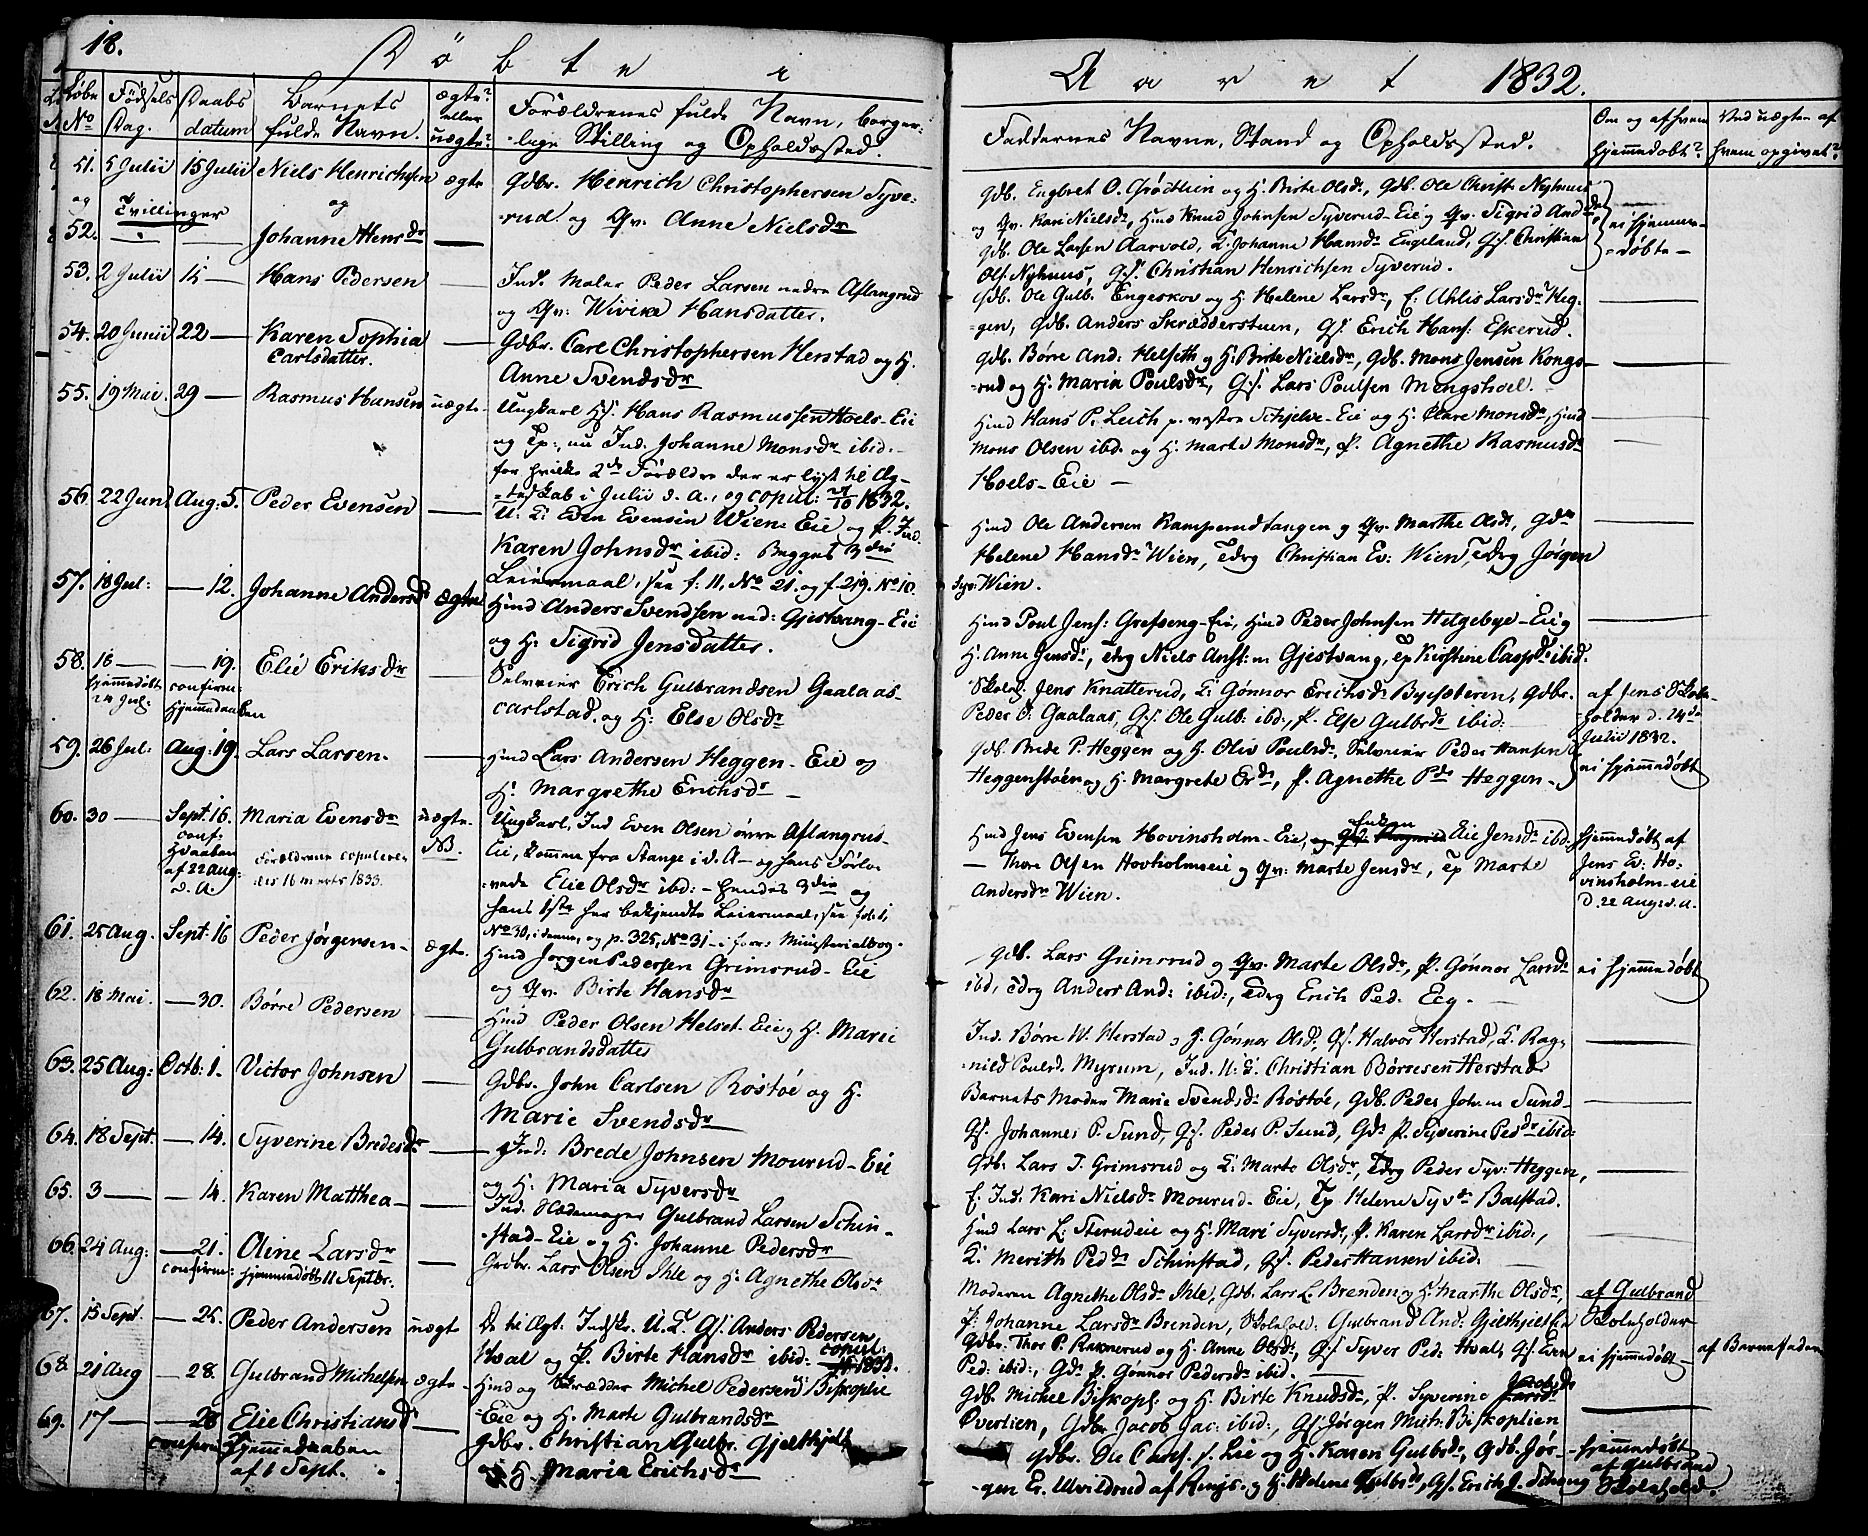 18. Döbte i
Aaret 1832.
Löbe No
Födsels Dag.
Daabs datum
Barnets fulde Navn.
ægte? eller uægte?
Forældrenes fulde Navn, borger-
-lige Stilling og Opholdssted.
Faddernes Navne, Stand og Opholdssted.
Om og af hvem hjemmedøbt?
Ved uægten af hvem opgivet?
51. 5 Julii 15 Julii Niels Henrichsen ægte
og Tvillinger og
52. Johanne Hensdr
Gdbr. Henrich Christophersen Syve-
-rud og Qv. Anne Nielsdr
Gdb. Engbret O. Grödtlien og H. Birte Olsdr, Gdb. Ole Christ. Nyhuus
og Qv. Kari Nielsdr, Hmd Knud Johnsen Syverud-Eie og Qv. Sigrid And.dr
Gdb. Ole Larsen Aarvold, T. Johanne Hansdr Engeland, Gs. Christian
Ols. Nyhuus, Gs. Christian Henrichsen Syverud.
ei hjemme-
-døbte-
53. 2 Julii 15 — Hans Pedersen —
Ind. Maler Peder Larsen nedre Aslangrud
og Qv: Wivike Hansdatter.
Gdb. Ole Gulb. Engeskov og H. Helene Larsdr, T: Ahlis Larsdr Heg-
gen, Gdb. Anders Skrædderstuen, Gs. Erich Hans: Eskerud.
54. 20 Junii 22 — Karen Sophia
Carlsdatter.
Gdbr. Carl Christophersen Herstad og H.
Anne Svendsdr
Gdb. Børre And: Helseth og H: Birte Nielsdr, Gdb. Mons Jensen Kongs-
-rud og H. Maria Poulsdr, Gs. Lars Poulsen Mengshoel.
55. 19 Mai. 29 — Rasmus Hansen uægte
Ungkarl Gs. Hans Rasmussen Hoels-Eie
og Tp:, nu Ind. Johanne Monsdr ibid.-
for hvilke 2de Forældre der er lyst til Æg-
-teskab i Julii d. A., og copul: 1832.
Hmd Hans P. Leich p. vestre Skjelve-Eie og H. Clare Monsdr, Hmd
Mons Olsen ibid. og H: Marte Monsdr, P. Agnethe Rasmusdr
Hoels-Eie —
56. 22 Juni Aug: 5. Peder Evensen —
U: K: Even Evensen Wiens Eie og P. Ind.
Karen Johnsdr ibid: Begges 3die
Leiermaal, see f: 11. No 21. og f. 219. No 10.
Hmd Ole Andersen Kamperudtangen og Qv. Marthe Olsdr, Gdr
Helene Hansdr Wien, Tdrg Christian Ev: Wien, Tdrg Jörgen
Syv: Wien.
57. 18 Jul: — 12. Johanne Andersdr ægte
Hmd Anders Svendsen ned: Gjestvang-Eie
og H. Sigrid Jensdatter.
Hmd Poul Jens: Grefseng-Eie, Hmd Peder Johnsen Helgebye-Eie og
H. Anne Jensdr, Tdrg Niels Ans: n: Gjestvang, Tp Kirstine Caspdr ibid.
58. 16 — — 19. Elie Eriksdr —
hjemmedöbt 24 Jul:
confirm: hjemmedaaben
Selveier Erich Gulbrandsen Gaalaas-
carlstad. og H: Else Olsdr
Skoleh. Jens Knatterud, T: Gönnor Erichsdr Byesæteren, Gdbr.
Peder O: Gaalaas, Gs. Ole Gulb: ibd:, P. Else Gulbrdr ibid:
af Jens Skole-
-holder d. 24de
Julii 1832.
59. 26 Jul: Aug: 19. Lars Larsen. —
Hmd Lars Andersen Heggen-Eie og
H: Margrethe Erichsdr —
Gdb. Brede P. Heggen og H. Oliv Poulsdr, Selveier Peder Hansen
Heggenstøen og H. Margrete Er.dr, P. Agnethe P.dr Heggen-
ei hjemmedøbt
60. 30 — Sept: 16. Maria Evensdr uægte
conf: Hdaaben af 22 aug: d. A.
Forældrene copulerede 16 Marts 1833.
NB.
Ungkarl, Ind Even Olsen övre Aslangrus-
Eie, komne fra Stange i d. A- og hans Trolo-
-vede Elie Olsdr ibid:- hendes 3die og
hans 1ste her bekjendte Leiermaal, see
No 30, i denne, og p. 325, No 31 - i forr: Ministerialbog.
Hmd Jens Evensen Hovinsholm-Eie, Enken Elie Jensdr ibid:
— Thore Olsen Hovholmseie og Qv: Marte Jensdr, Tp Marte
Andersdr Wien.
Hjemmedöbt af
Jens Ev: Ho-
vinsholm-eie
d. 22 Aug. d. A.
61. 25 Aug. Sept: 16 Peder Jörgensen- ægte.
Hmd Jörgen Pedersen Grimsrud-Eie
og Qv. Birte Hansdr
Gdb. Lars Grimsrud og Qv. Marte Olsdr, P. Gönnor Larsdr
ibd, Tdrg Anders And: ibid:, Tdrg Erich Ped: Eeg.-
ei hjemmedöbt
62. 18 Mai. — 30. Börre Pedersen —
Hmd Peder Olsen Helset-Eie og H. Marie
Gulbrandsdatter
Ind. Börre W. Herstad og H. Gönnor Olsdr, Gs. Halvor Herstad, T. Rag-
-nild Poulsd. Myrum, Ind. U: K. Christian Börresen Herstad
63. 25 Aug: Octb: 1. Victor Johnsen —
Gdbr. John Carlsen Röstöe og H.
Marie Svendsdr
Barnets Moder Marie Svendsdr Röstöe, Gdb. Peder Joh: Sund-
Gs. Johannes P. Sund, Gs. Peder P. Sund, Gdr P. Syverine Peddr ibid:
64. 18 Sept. — 14. Syverine Bredesdr —
Ind: Brede Johnsen Mourud-Eie
og H. Maria Syversdr
Gdb. Lars J. Grimsrud og T: Marte Olsdr, Tdrg Peder Syv: Heggen,
T. Ind. Kari Nielsdr Mourud-Eie, Tp Helene Syvdr Balstad.
65. 3 — — 14. Karen Matthea- —
Ind. Gulbrand Larsen Schin-
-stad-Eie og H. Johanne Pedersdr
Hmd Lars L. Sterudeie og H: Mari Syversdr, P. Karen Larsdr ibid.,
T: Merith Peddr Schinstad, Gs. Peder Hansen ibid.
66. 24 Aug: — 21. Oline Larsdr —
confirm: hjemmedöbt 11 Septbr.
Grdbr. Lars Olsen Ihle og H: Agnethe Olsdr
Moderen Agnethe Olsdr Ihle, Gdb. Lars L. Brenden og H: Marthe Olsdr,
P: Johanne Larsdr Brenden, Skolehold. Gulbrand And: Gjelshjelle
af Gulbrand
Skoleholder
67. 15 Sept. — 25. Peder Andersen uægt
De til Ægt. Indskr. U. K. Gs. Anders Pedersen
Hval og P. Birte Hansdr ibid: copul:
Gdbr. Thor P. Raknerud og H. Anne Olsdr, Gs Syver Ped: Hval, Gs. Even
Ped: ibid:, Gdr P. Gönnor Pedersdr ibid.
ei hjemmedöbt-
af Barnefaderen
68. 21 Aug — 28. Gulbrand Michelsen ægte-
Hmd og Skrædder Michel Pedersen Biskoplie
-Eie og H. Marte Gulbrandsdr
Gdb. Michel Biskopl. og H. Birte Knudsdr, P. Syverine Jacobsdr
Överlien, Gdbr Jacob Jac: ibid:, Gs. Jörgen Mich: Biskoplien
69. 17 — — 28 Elie Christiansdr —
confirm Hjemmedaaben
af 1 Sept.
Gdbr. Christian Gulbr. Gjelshjelle
og H. Maria Erichsdr
Gdbr. Ole Chris. s. Lie og H. Karen Gulbrdr, Gdb. Jör-
-gen Er. Ulvildrud af Rings. og H: Helene Gulbrdr, Gs. Erich
hjemmedöbt
af Gulbrand
Skolehold.